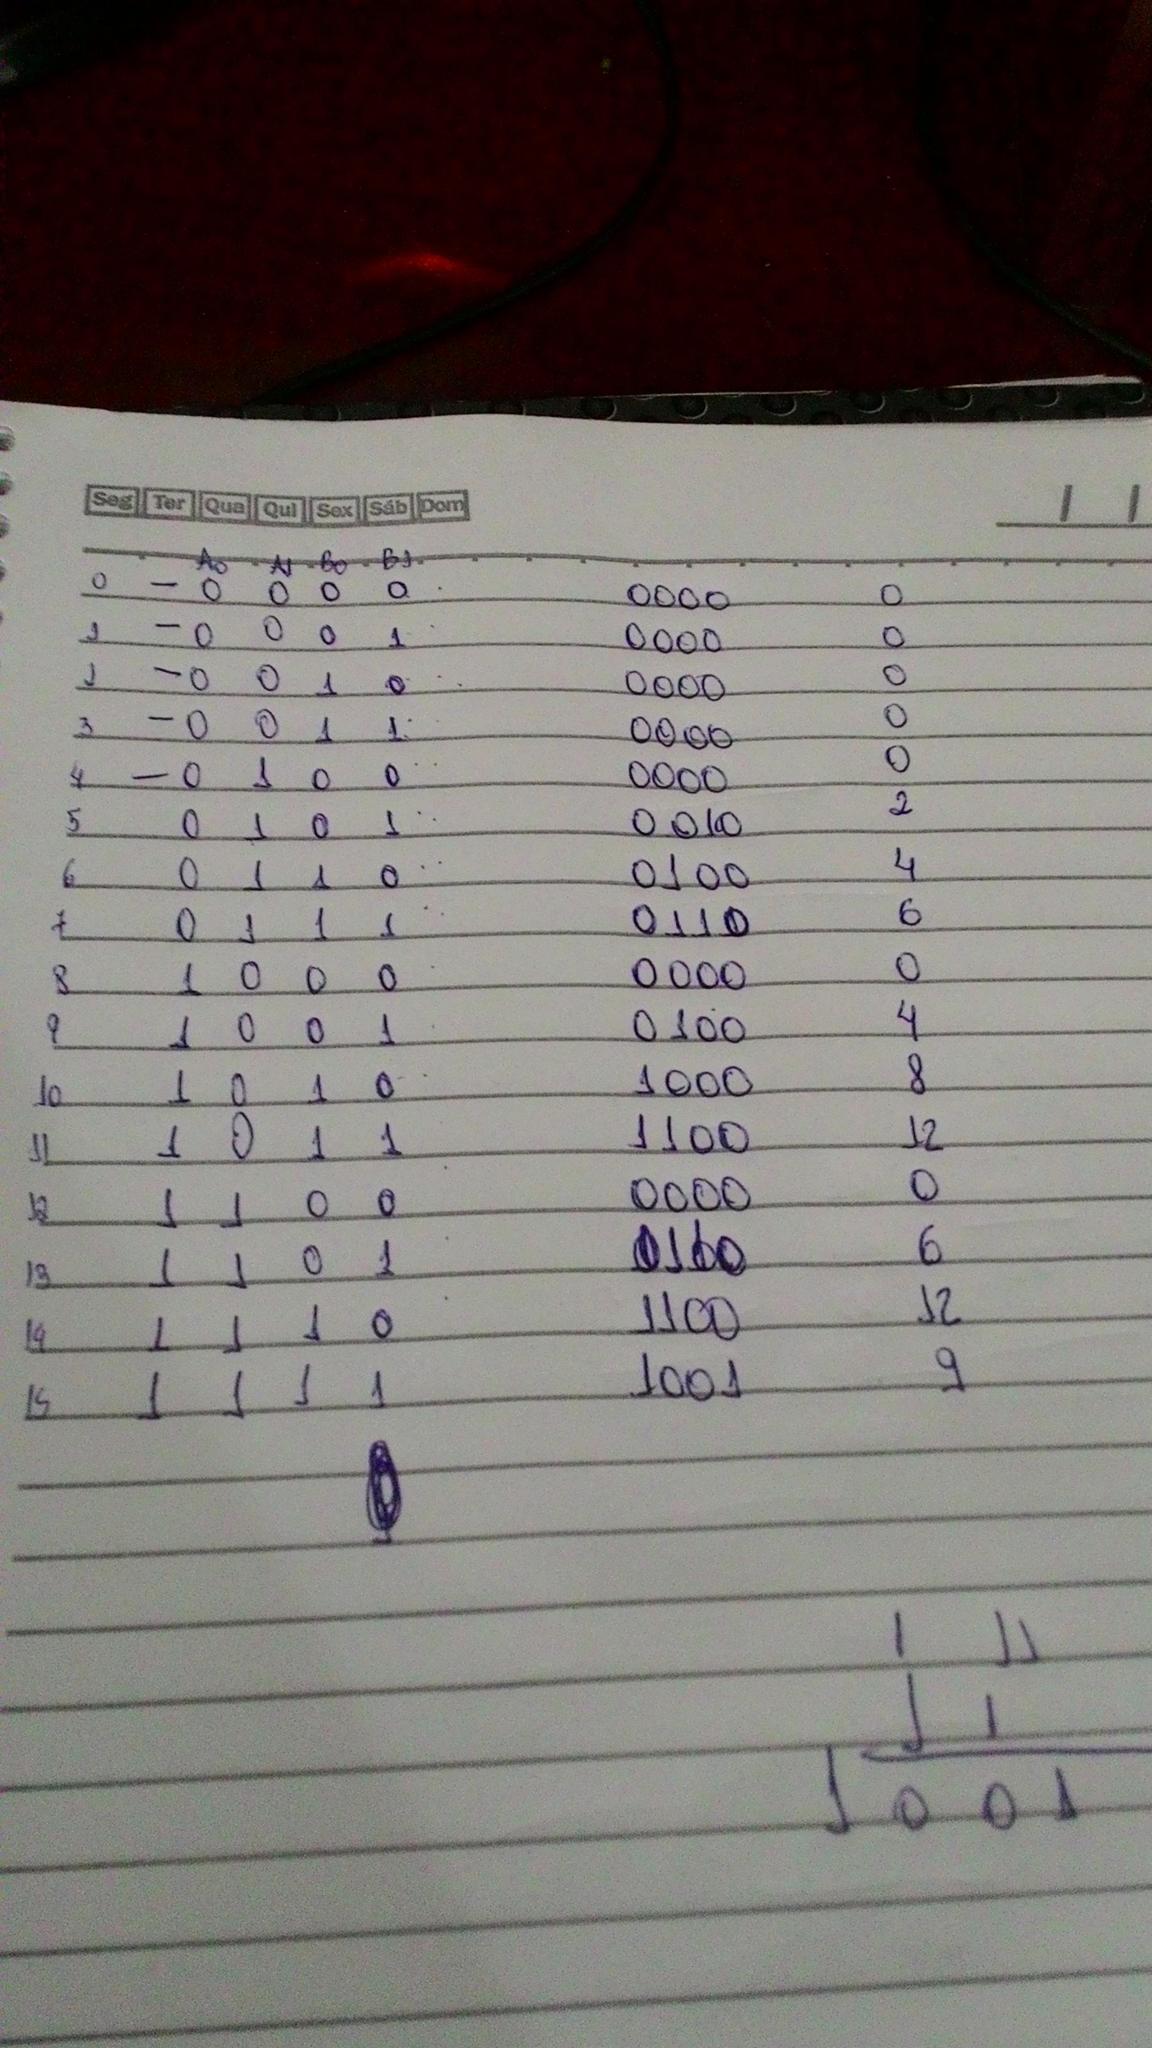 Seg Ter Qua Qui Sex Sáb Dom
A0 A1 B0 B1
0 - 0 0 0 0 0000 0
1 - 0 0 0 1 0000 0
2 - 0 0 1 0 0000 0
3 - 0 0 1 1 0000 0
4 - 0 1 0 0 0000 0
5 0 1 0 1 0010 2
6 0 1 1 0 0100 4
7 0 1 1 1 0110 6
8 1 0 0 0 0000 0
9 1 0 0 1 0100 4
10 1 0 1 0 1000 8
11 1 0 1 1 1100 12
12 1 1 0 0 0000 0
13 1 1 0 1 0110 6
14 1 1 1 0 1100 12
15 1 1 1 1 1001 9
1 11
1 1
1 0 0 1